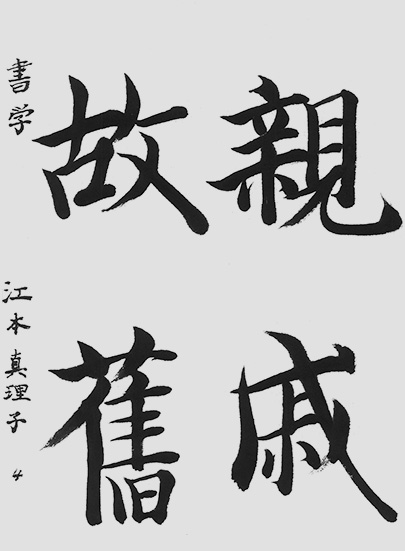 親戚
故舊
書学 江本真理子 4